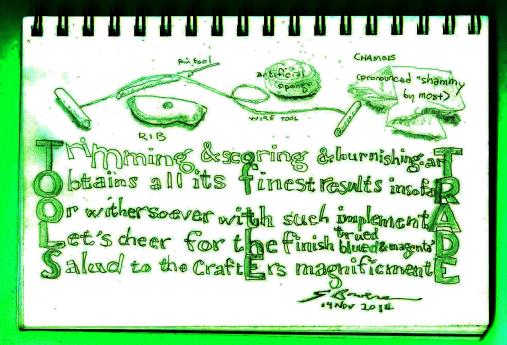 Pin tool
artificial
sponge
CHAMOIS
(pronounced "shammy"
by most)
RIB
WIRE TOOL
Trimming, & scoring & burnishing, art
Obtains all its finest results insofar
Or withersoever with such implement,
Let's cheer for the finish
blued & magenta'd
Salud to the CraftErs magnificment
14 Nov 2014